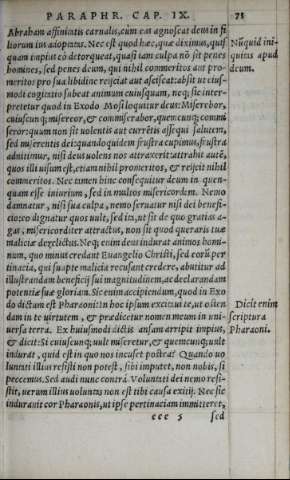 PARAPHR. CAP. IX. 71
Abraham affinitatis carnalis, cum eas agnoscat deus in fi
liorum ius adoptatos. Nec est quod hæc, quæ diximus, quis
quam impius eò detorqueat, quasi iam culpa nõ sit penes
homines, sed penes deum, qui nihil commeritos aut pro
meritos pro sua libidine reijciat aut asciscat: absit ut eius-
modi cogitatio subeat animum cuiusquam, neq; sic inter-
pretetur quod in Exodo Mosi loquitur deus: Miserebor,
cuiuscunq; misereor, & commiserabor, quemcunq; commi
seror: quum non sit uolentis aut currẽtis assequi salutem,
sed miserentis dei: quandoquidem frustra cupimus, frustra
adnitimur, nisi deus uolens nos attraxerit: attrahit autẽ,
quos illi uisum est, etiam nihil promeritos, & reijcit nihil
commeritos. Nec tamen hinc consequitur deum in quen-
quam esse iniurium, sed in multos misericordem. Nemo
damnatur, nisi sua culpa, nemo seruatur nisi dei benefi-
cio: eo dignatur quos uult, sed ita, ut sit de quo gratias a-
gas, misericorditer attractus, non sit quod queraris tuæ
maliciæ derelictus. Neq; enim deus indurat animos homi-
num, quo minus credant Euangelio Christi, sed eorũ per
tinacia, qui suapte malicia recusant credere, abutitur ad
illustrandam beneficij sui magnitudinem, ac declarandam
potentiæ suæ gloriam. Sic enim accipiendum, quod in Exo
do dictum est Pharaoni: In hoc ipsum excitaui te, ut osten
dam in te uirtutem, & prædicetur nomen meum in uni-
uersa terra. Ex huiusmodi dictis ansam arripit impius,
& dicit: Si cuiuscunq; uult miseretur, & quemcunq; uult
indurat, quid est in quo nos incuset posteà? Quando uo
luntati illius resisti non potest, sibi imputet, non nobis, si
peccemus. Sed audi nunc contrà. Voluntati dei nemo resi-
stit, uerum illius uoluntas non est tibi causa exitij. Nec sic
indurauit cor Pharaonis, ut ipse pertinaciam immitteret,
eee 5 sed
Nũquid ini-
quitas apud
deum.
Dicit enim
scriptura
Pharaoni.